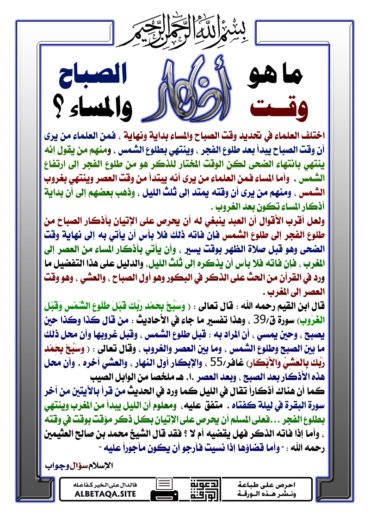 بسم الله الرحمن الرحيم
ما هو
وقت
أذكار
الصباح
والمساء ؟
اختلف العلماء في تحديد وقت الصباح والمساء بداية ونهاية ، فمن العلماء من يرى
أن وقت الصباح يبدأ بعد طلوع الفجر ، وينتهي بطلوع الشمس ، ومنهم من يقول إنه
ينتهي بانتهاء الضحى لكن الوقت المختار للذكر هو من طلوع الفجر إلى ارتفاع
الشمس . وأما المساء فمن العلماء من يرى أنه يبتدأ من وقت العصر وينتهي بغروب
الشمس ، ومنهم من يرى أن وقته يمتد إلى ثلث الليل ، وذهب بعضهم إلى أن بداية
أذكار المساء تكون بعد الغروب .
ولعل أقرب الأقوال أن العبد ينبغي له أن يحرص على الإتيان بأذكار الصباح من
طلوع الفجر إلى طلوع الشمس فإن فاته ذلك فلا بأس أن يأتي به إلى نهاية وقت
الضحى وهو قبل صلاة الظهر بوقت يسير ، وأن يأتي بأذكار المساء من العصر إلى
المغرب ، فإن فاته فلا بأس أن يذكره إلى ثلث الليل، والدليل على هذا التفضيل ما
ورد في القرآن من الحث على الذكر في البكور وهو أول الصباح ، والعشي ، وهو وقت
العصر إلى المغرب .
قال ابن القيم رحمه الله : قال تعالى : ( وسبح بحمد ربك قبل طلوع الشمس وقبل
الغروب) سورة ق/39 ، وهذا تفسير ما جاء في الأحاديث : من قال كذا وكذا حين
يصبح ، وحين يمسي ، أن المراد به : قبل طلوع الشمس ، وقبل غروبها وأن محل ذلك
ما بين الصبح وطلوع الشمس ، وما بين العصر والغروب ، وقال تعالى : ( وسبح بحمد
ربك بالعشي والأبكار) غافر/55 ، والإبكار أول النهار ، والعشي آخره . وأن محل
هذه الأذكار بعد الصبح ، وبعد العصر .ا. هـ ملخصا من الوابل الصيب
كما أن هناك أذكاراً تقال في الليل كما ورد في الحديث من قرأ بالآيتين من آخر
سورة البقرة في ليلة كفتاه . متفق عليه، ومعلوم أن الليل يبدأ من المغرب وينتهي
بطلوع الفجر ...فعلى المسلم أن يحرص على الإتيان بكل ذكر مؤقت بوقت في وقته
، وأما إذا فاته الذكر فهل يقضيه أم لا ؟ فقد قال الشيخ محمد بن صالح العثيمين
رحمه الله : - وأما قضاؤها إذا نسيت فأرجو أن يكون مأجوراً عليه -
الإسلام سؤال وجواب
احرص على طباعة
ونشر هذه الورقة
الدال على الخير كفاعله
ALBETAQA.SITE